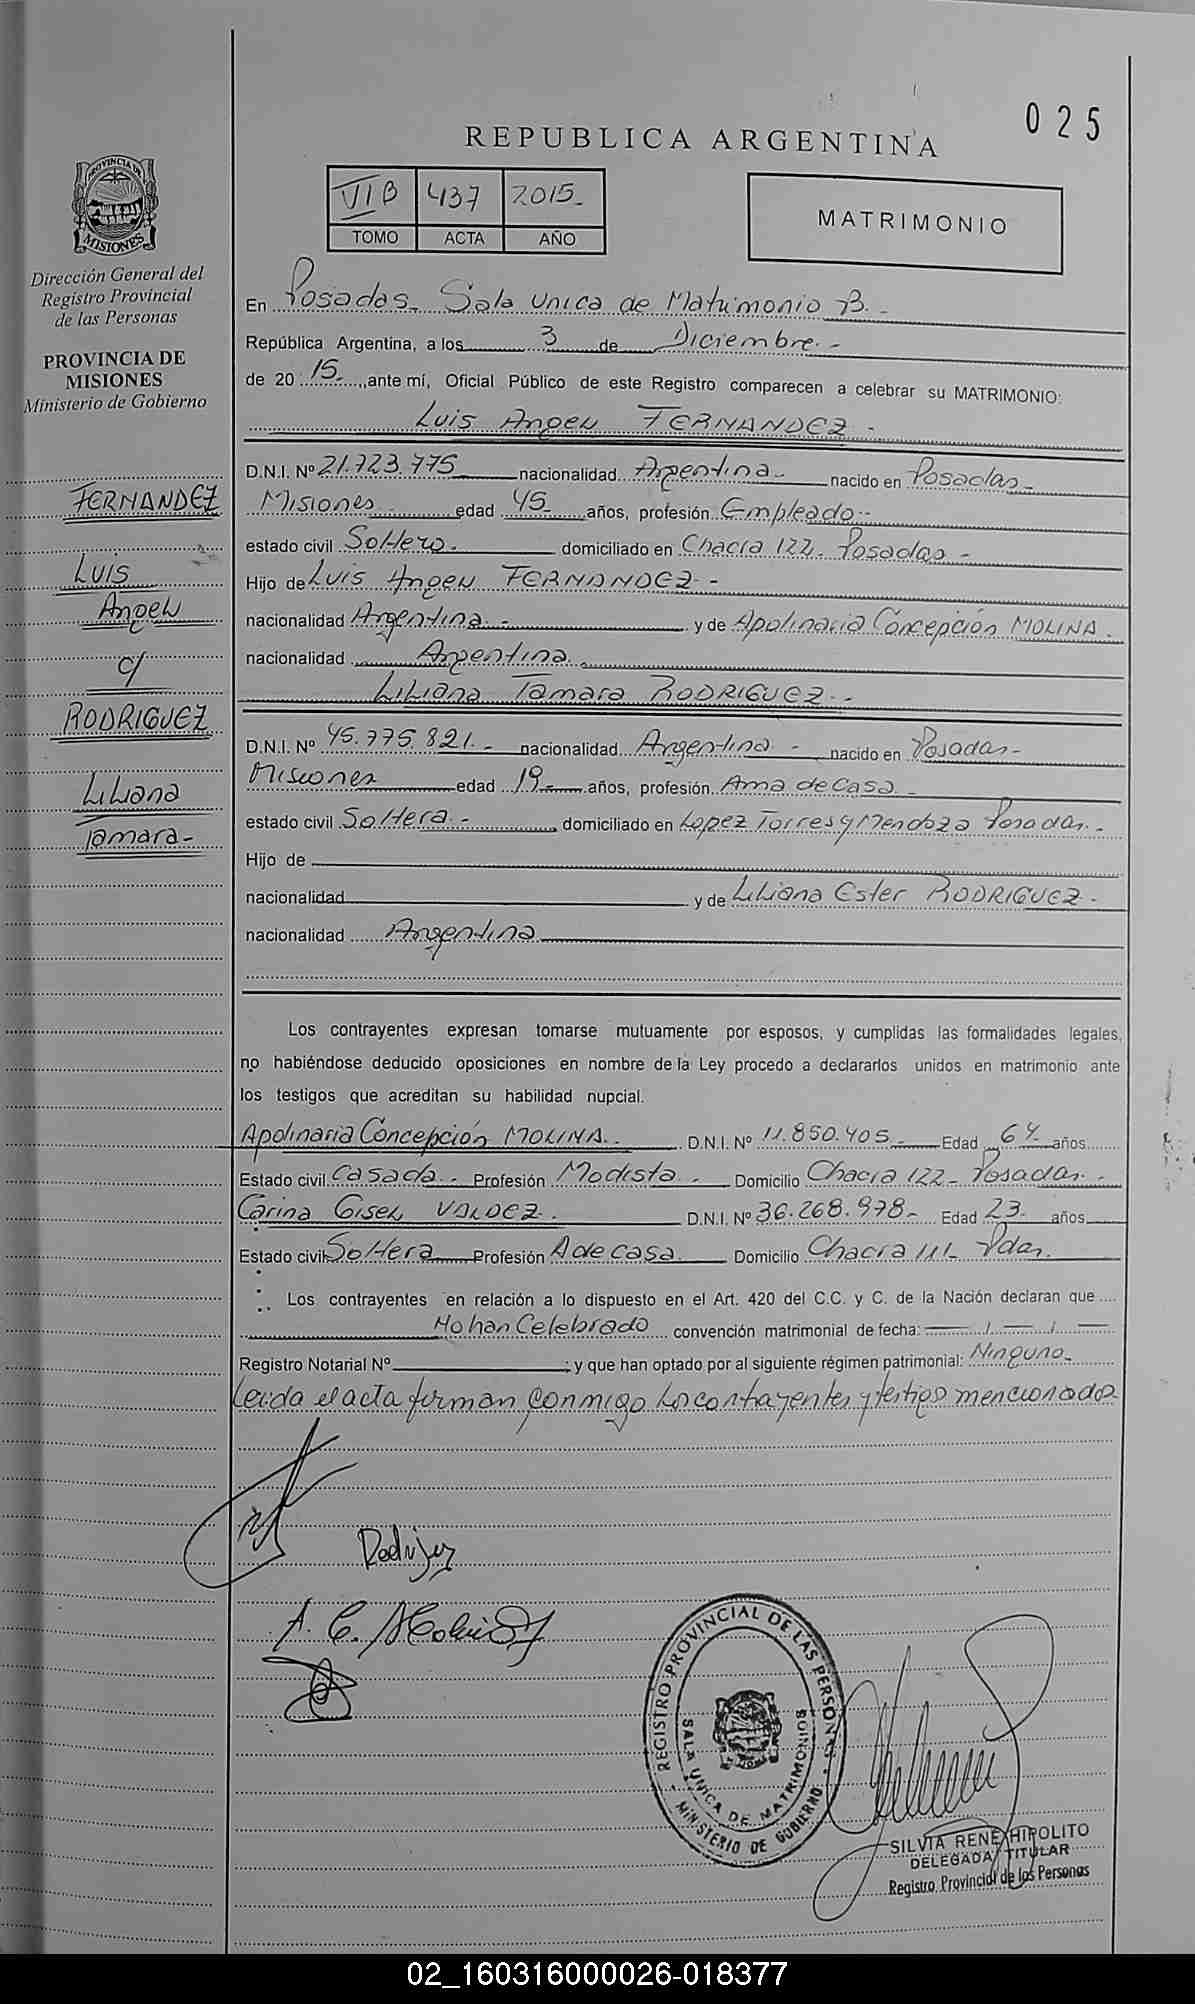 025
REPUBLICA ARGENTINA
VI B 437 2015.-
TOMO ACTA AÑO
MATRIMONIO
PROVINCIA DE MISIONES
Dirección General del
Registro Provincial
de las Personas
PROVINCIA DE
MISIONES
Ministerio de Gobierno
FERNANDEZ
Luis
Angel
c/
RODRIGUEZ
Liliana
Tamara-
En Posadas- Sala Unica de Matrimonio B.-
República Argentina, a los 3 de Diciembre.-
de 20 15.-, ante mí, Oficial Público de este Registro comparecen a celebrar su MATRIMONIO:
Luis Angel FERNANDEZ.-
D.N.I. Nº 21.723.775 nacionalidad Argentina- nacido en Posadas-
Misiones edad 45- años, profesión Empleado.-
estado civil Soltero.- domiciliado en Chacra 122- Posadas-
Hijo de Luis Angel FERNANDEZ.-
nacionalidad Argentina.- y de Apolinaria Concepción MOLINA.
nacionalidad Argentina.
Liliana Tamara RODRIGUEZ.-
D.N.I. Nº 45.775.821.- nacionalidad Argentina.- nacido en Posadas-
Misiones edad 19.- años, profesión Ama de Casa.-
estado civil Soltera.- domiciliado en Lopez Torres y Mendoza Posadas.-
Hijo de
nacionalidad y de Liliana Ester RODRIGUEZ.-
nacionalidad Argentina
Los contrayentes expresan tomarse mutuamente por esposos, y cumplidas las formalidades legales,
no habiéndose deducido oposiciones en nombre de la Ley procedo a declararlos unidos en matrimonio ante
los testigos que acreditan su habilidad nupcial.
Apolinaria Concepción MOLINA. D.N.I. Nº 11.850.405- Edad 64 años
Estado civil Casada.- Profesión Modista.- Domicilio Chacra 122- Posadas.-
Carina Gisel VALDEZ.- D.N.I. Nº 36.268.978- Edad 23- años
Estado civil Soltera Profesión A de Casa. Domicilio Chacra 111- Pdas.
Los contrayentes en relación a lo dispuesto en el Art. 420 del C.C. y C. de la Nación declaran que
No han Celebrado convención matrimonial de fecha: / /
Registro Notarial Nº ; y que han optado por al siguiente régimen patrimonial: Ninguno-
Leida el acta firman conmigo los contrayentes y testigos mencionados
A. C. Molina
REGISTRO PROVINCIAL DE LAS PERSONAS
SALA UNICA DE MATRIMONIOS
MINISTERIO DE GOBIERNO
SILVIA RENE HIPOLITO
DELEGADA TITULAR
Registro Provincial de las Personas
02_160316000026-018377